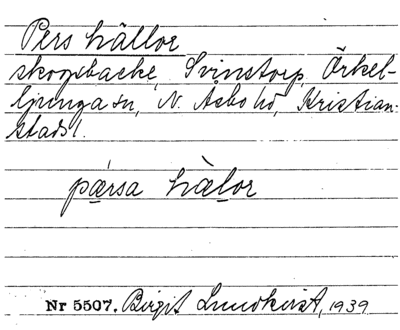 Pers hällor
skogsbacke, Svinstorp, Örkel-
ljunga sn, N. Åsbo hd, Kristian-
stads l.
pǽrsa hàlor
Nr 5507. Birgit Lundkvist, 1939